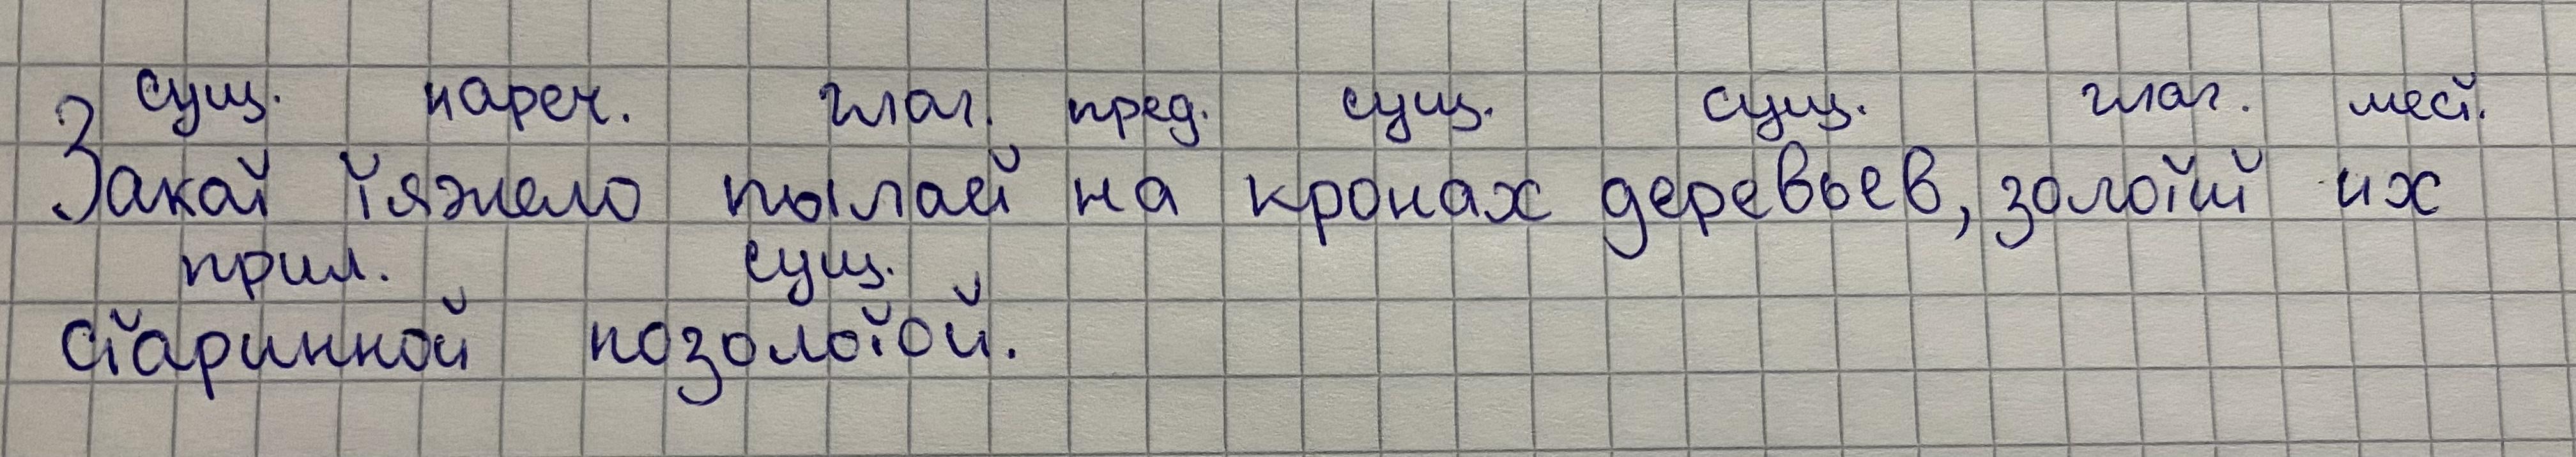 сущ. нареч. глаг. пред. сущ. сущ. глаг. мест.
Закат тяжело пылает на кронах деревьев, золотит их
прил. сущ.
старинной позолотой.